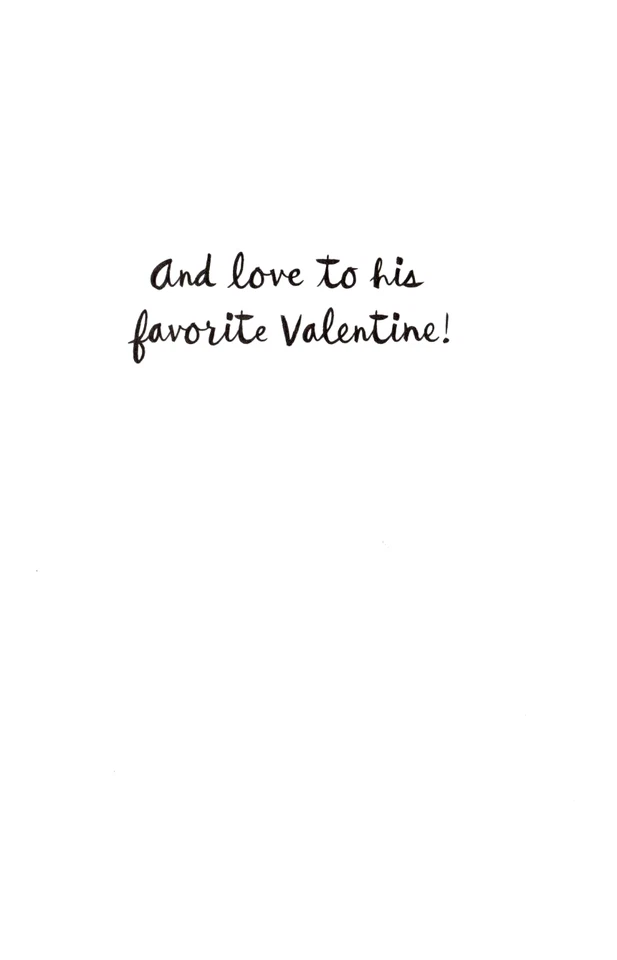 And love to his
favorite Valentine!